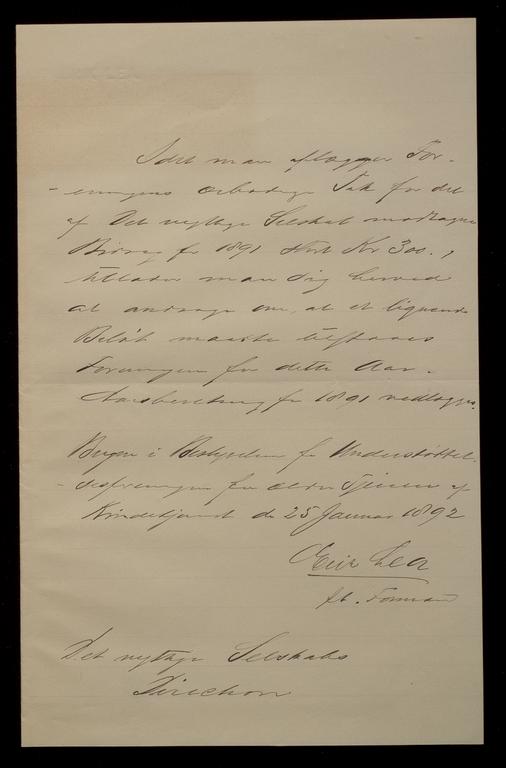 Idet man aflægger For-
- eningens ærbødige Tak for det
af Det nyttige Selskab modtagne
Bidrag for 1891 stort Kr 300.,
tillader man sig herved
at andrage om, at et lignende
Beløb maatte tilstaaes
Foreningen for dette Aar.
Aarsberetning for 1891 vedlægges.
Bergen i Bestyrelsen for Understøttel-
- sesforeningen for ældre Tjenere af
Kvindekjønnet den 25 Januar 1892
Lea
ft. Formand
Det nyttige Selskabs
Direction